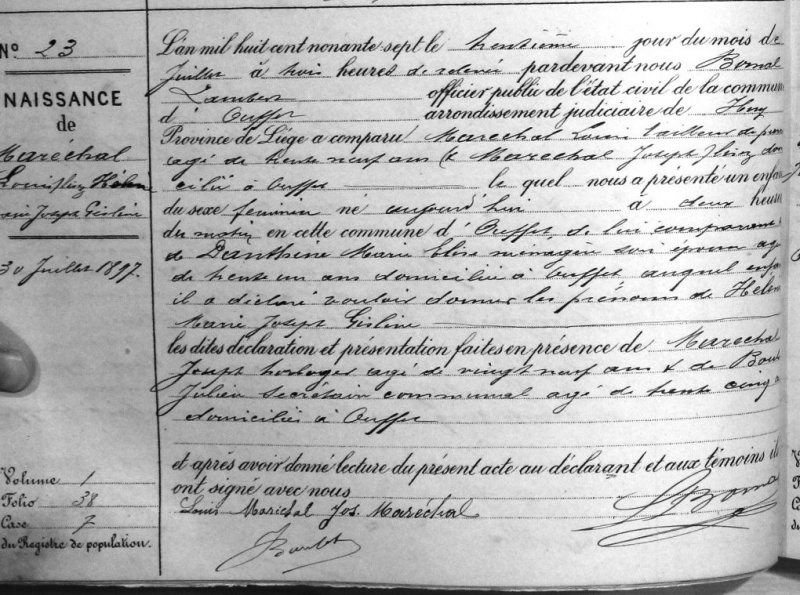 N° 23
NAISSANCE
de
Maréchal
Hélène
Marie Joseph Gisline
30 Juillet 1897.
Volume 1
Folio 38
Case 7
du Registre de population.
L'an mil huit cent nonante-sept le trentième jour du mois de
Juillet à trois heures de relevée pardevant nous Bomal
Lambert officier public de l'état civil de la commun
d' Ouffet arrondissement judiciaire de Huy
Province de Liége a comparu Marechal Louis tailleur de pierres
agé de trente neuf ans (& Marechal Joseph) domi
cilié à Ouffet le quel nous a présenté un enfan
du sexe féminin né aujourd'hui à deux heure
du matin en cette commune d' Ouffet, de lui comparant
de Danthine Marie Elise ménagère son épouse agée
de trente un ans domiciliée à Ouffet auquel enfant
il a déclaré vouloir donner les prénoms de Hélène
Marie Joseph Gisline
les dites déclaration et présentation faites en présence de Marechal
Joseph horloger agé de vingt neuf ans & de
Julien secrétaire communal agé de trente cinq a
domiciliés à Ouffet
et après avoir donné lecture du présent acte au déclarant et aux témoins ils
ont signé avec nous
Louis Maréchal Jos. Maréchal